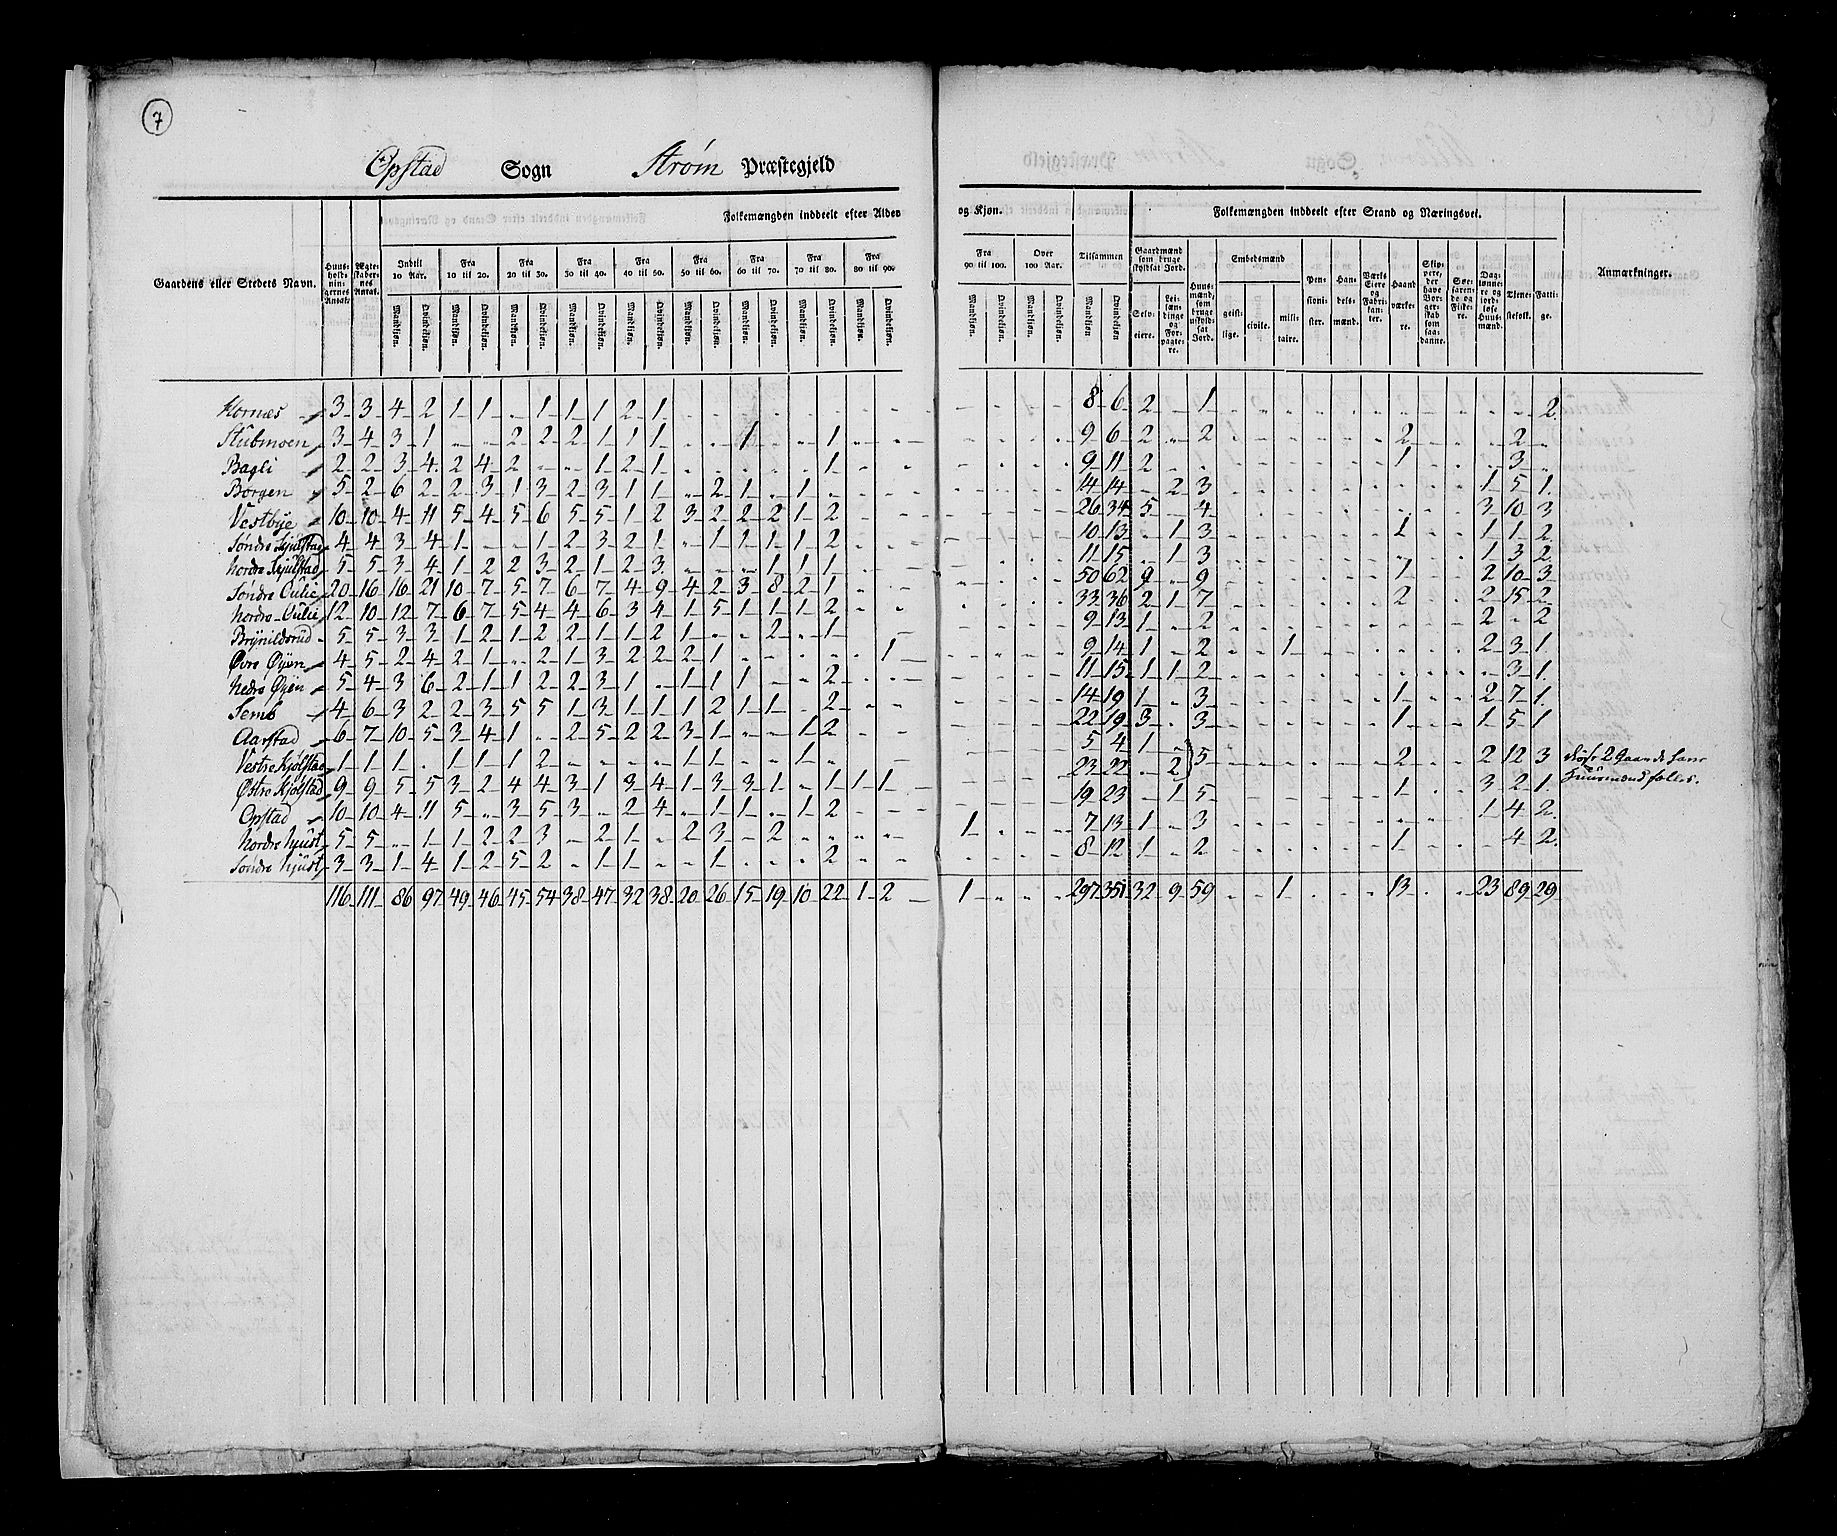 7
Opstad Sogn Strøm Præstegjeld
Gaardens eller Steders Navn. Huusholdningernes Antal. Ægteskabernes Antal. Folkemængden inddeelt efter Alder og Kjøn. Tilsammen Folkemængden inddeelt efter Stand og Næringsvei. Anmærkninger.
Indtil 10 Aar. Fra 10 til 20. Fra 20 til 30. Fra 30 til 40. Fra 40 til 50. Fra 50 til 60. Fra 60 til 70. Fra 70 til 80. Fra 80 til 90. Fra 90 til 100. Over 100 Aar.
Gaardmænd som bruge skyldsat Jord. Selveiere. Leilændinge og Forpagtere. Huusmænd, som bruge uskyldsat Jord. Embedsmænd geistlige. civile. militaire. Pensionister. Handelsmænd. Værks Eiere og Fabrikanter. Haandværkere. Skippere, der have Borgerskab som saadanne. Søefarende og Fiskere. Daglønnere og jordløse Huusmænd. Tjenestefolk. Fattige.
Mandkjøn. Qvindekjøn. Mandkjøn. Qvindekjøn. Mandkjøn. Qvindekjøn. Mandkjøn. Qvindekjøn. Mandkjøn. Qvindekjøn. Mandkjøn. Qvindekjøn. Mandkjøn. Qvindekjøn. Mandkjøn. Qvindekjøn. Mandkjøn. Qvindekjøn. Mandkjøn. Qvindekjøn. Mandkjøn. Qvindekjøn. Mandkjøn. Qvindekjøn.
Hornæs 3 3 4 2 1 1 " 1 1 1 2 1 8 6 2 " 1 2
Stubmoen 3 4 3 1 " " 2 2 2 1 1 1 " " 1 " " 1 9 6 2 " 2 2 2
Bagli 2 2 3 4 2 4 2 " " 1 2 1 " " " " " 1 9 11 2 1 3
Borgen 5 2 6 2 2 3 1 3 2 3 1 1 " 2 1 " 1 14 14 " 2 3 1 5 1
Vestbye 10 10 4 11 5 4 5 6 5 5 1 2 3 2 2 2 1 2 26 34 5 " 4 3 10 3
Søndre Skjulstad 4 4 3 4 1 " " 1 2 3 2 1 " 1 1 1 1 2 10 13 " 1 3 1 1 1 2
Nordre Skjulstad 5 5 3 4 1 2 2 3 2 1 2 3 " " " 1 1 1 11 15 " 1 3 1 3 2
Søndre Oulie 20 16 16 21 10 7 5 7 6 7 4 9 4 2 3 8 2 1 50 62 9 " 9 1 2 10 3
Nordre Oulie 12 10 12 7 6 7 5 4 4 6 3 4 1 5 1 1 1 2 33 36 2 1 7 2 2 15 2
Brynildsrud 5 5 3 3 1 2 1 2 2 1 1 2 1 " " 2 " 1 9 13 1 " 2 2 " 2
Øvre Øyen 4 5 2 4 2 1 " 2 1 3 2 2 2 1 " " " " " 1 9 14 1 " 2 1 2 3 1
Nedre Øyen 5 4 3 6 2 1 1 2 2 3 1 " 1 1 1 " " 2 11 15 1 1 2 3 1
Semb 4 6 3 2 2 3 5 5 1 3 1 1 1 2 1 1 " 2 14 19 1 " 3 1 2 7 1
Aarstad 6 7 10 5 3 4 1 " 2 5 2 2 3 1 " " 1 2 22 19 3 " 3 1 1 5 1
Vestre Kjølstad 1 1 1 " 1 1 1 2 " " " " 1 1 " " " " 5 4 1 " 5 2 2 12 3 disse 2 Gaarde have
Østre Kjølstad 9 9 5 5 3 2 4 4 3 1 3 4 1 3 3 1 " 1 1 1 23 22 " 2 Huusmænd fælles.
Opstad 10 10 4 11 5 " 3 5 3 " 2 4 " 1 1 " 1 2 19 23 " 1 5 1 3 2 1
Nordre Njust 5 5 " 1 1 2 2 3 " 2 1 " 2 3 " 2 1 7 13 1 " 3 1 4 2
Søndre Njust 3 3 1 4 1 2 5 2 " 1 1 " " 1 " " " 2 8 12 1 " 2 1 4 2
116 111 86 97 49 46 45 54 38 47 32 38 20 26 15 19 10 22 1 2 1 " " " 297 351 32 9 59 " " 1 13 23 89 29